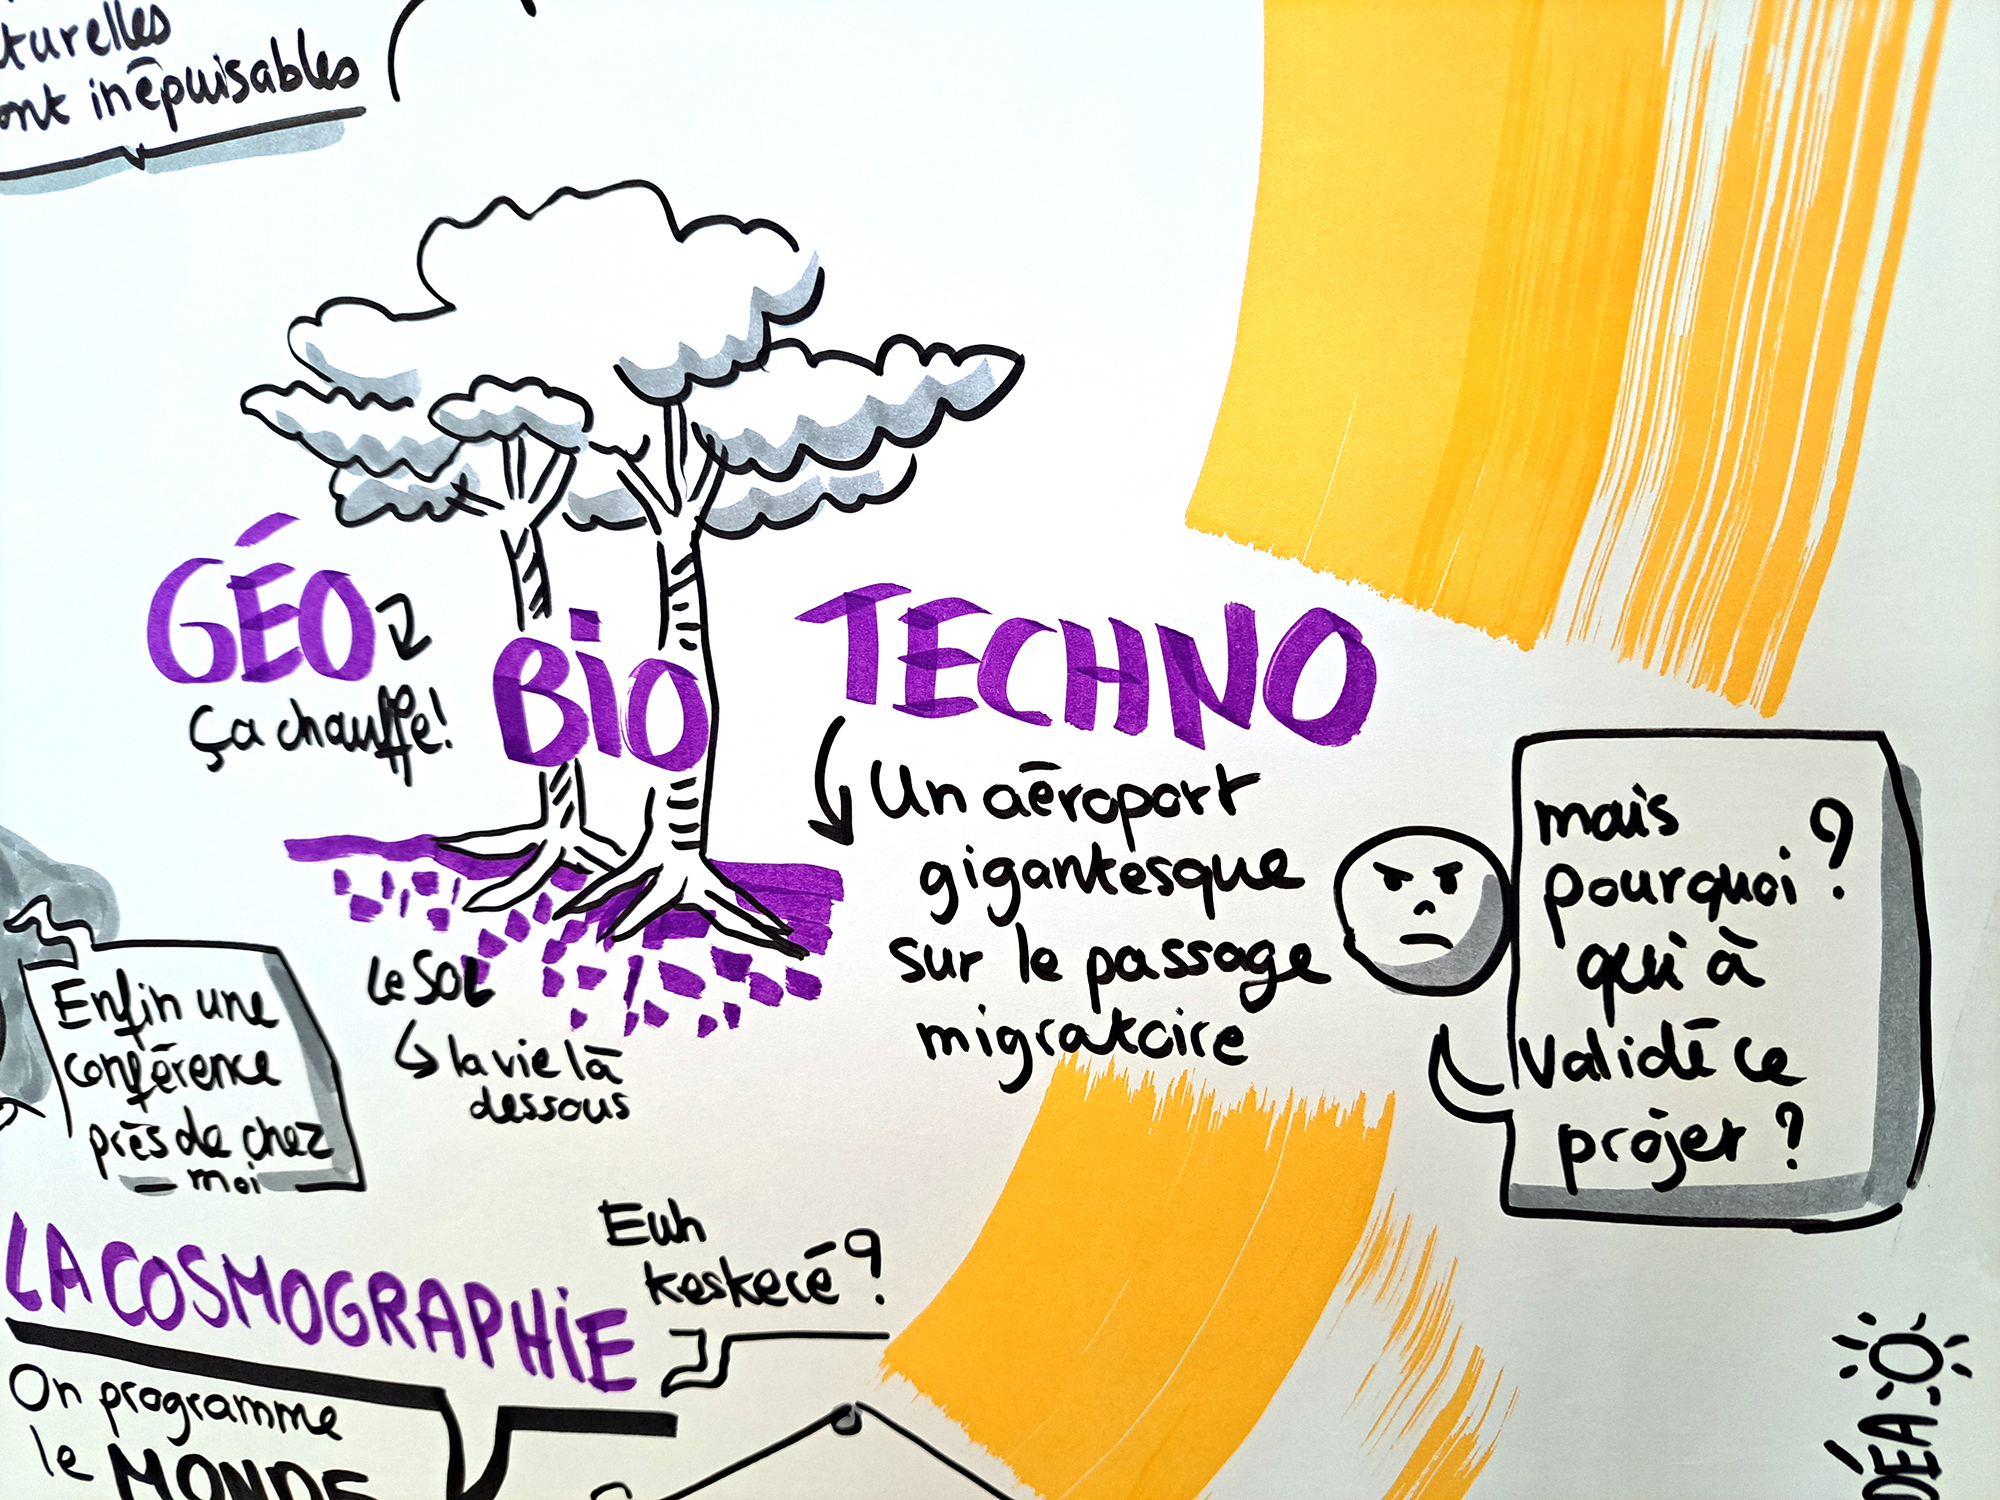 turelles
ont inépuisables
GÉO
ça chauffe!
BiO
TECHNO
Un aéroport
gigantesque
sur le passage
migratoire
mais
pourquoi ?
qui à
validé ce
projet ?
Le SOL
la vie là
dessous
Enfin une
conférence
près de chez
moi
LA COSMOGRAPHiE
Euh
keskecé ?
On programme
le MONDE
DÉA